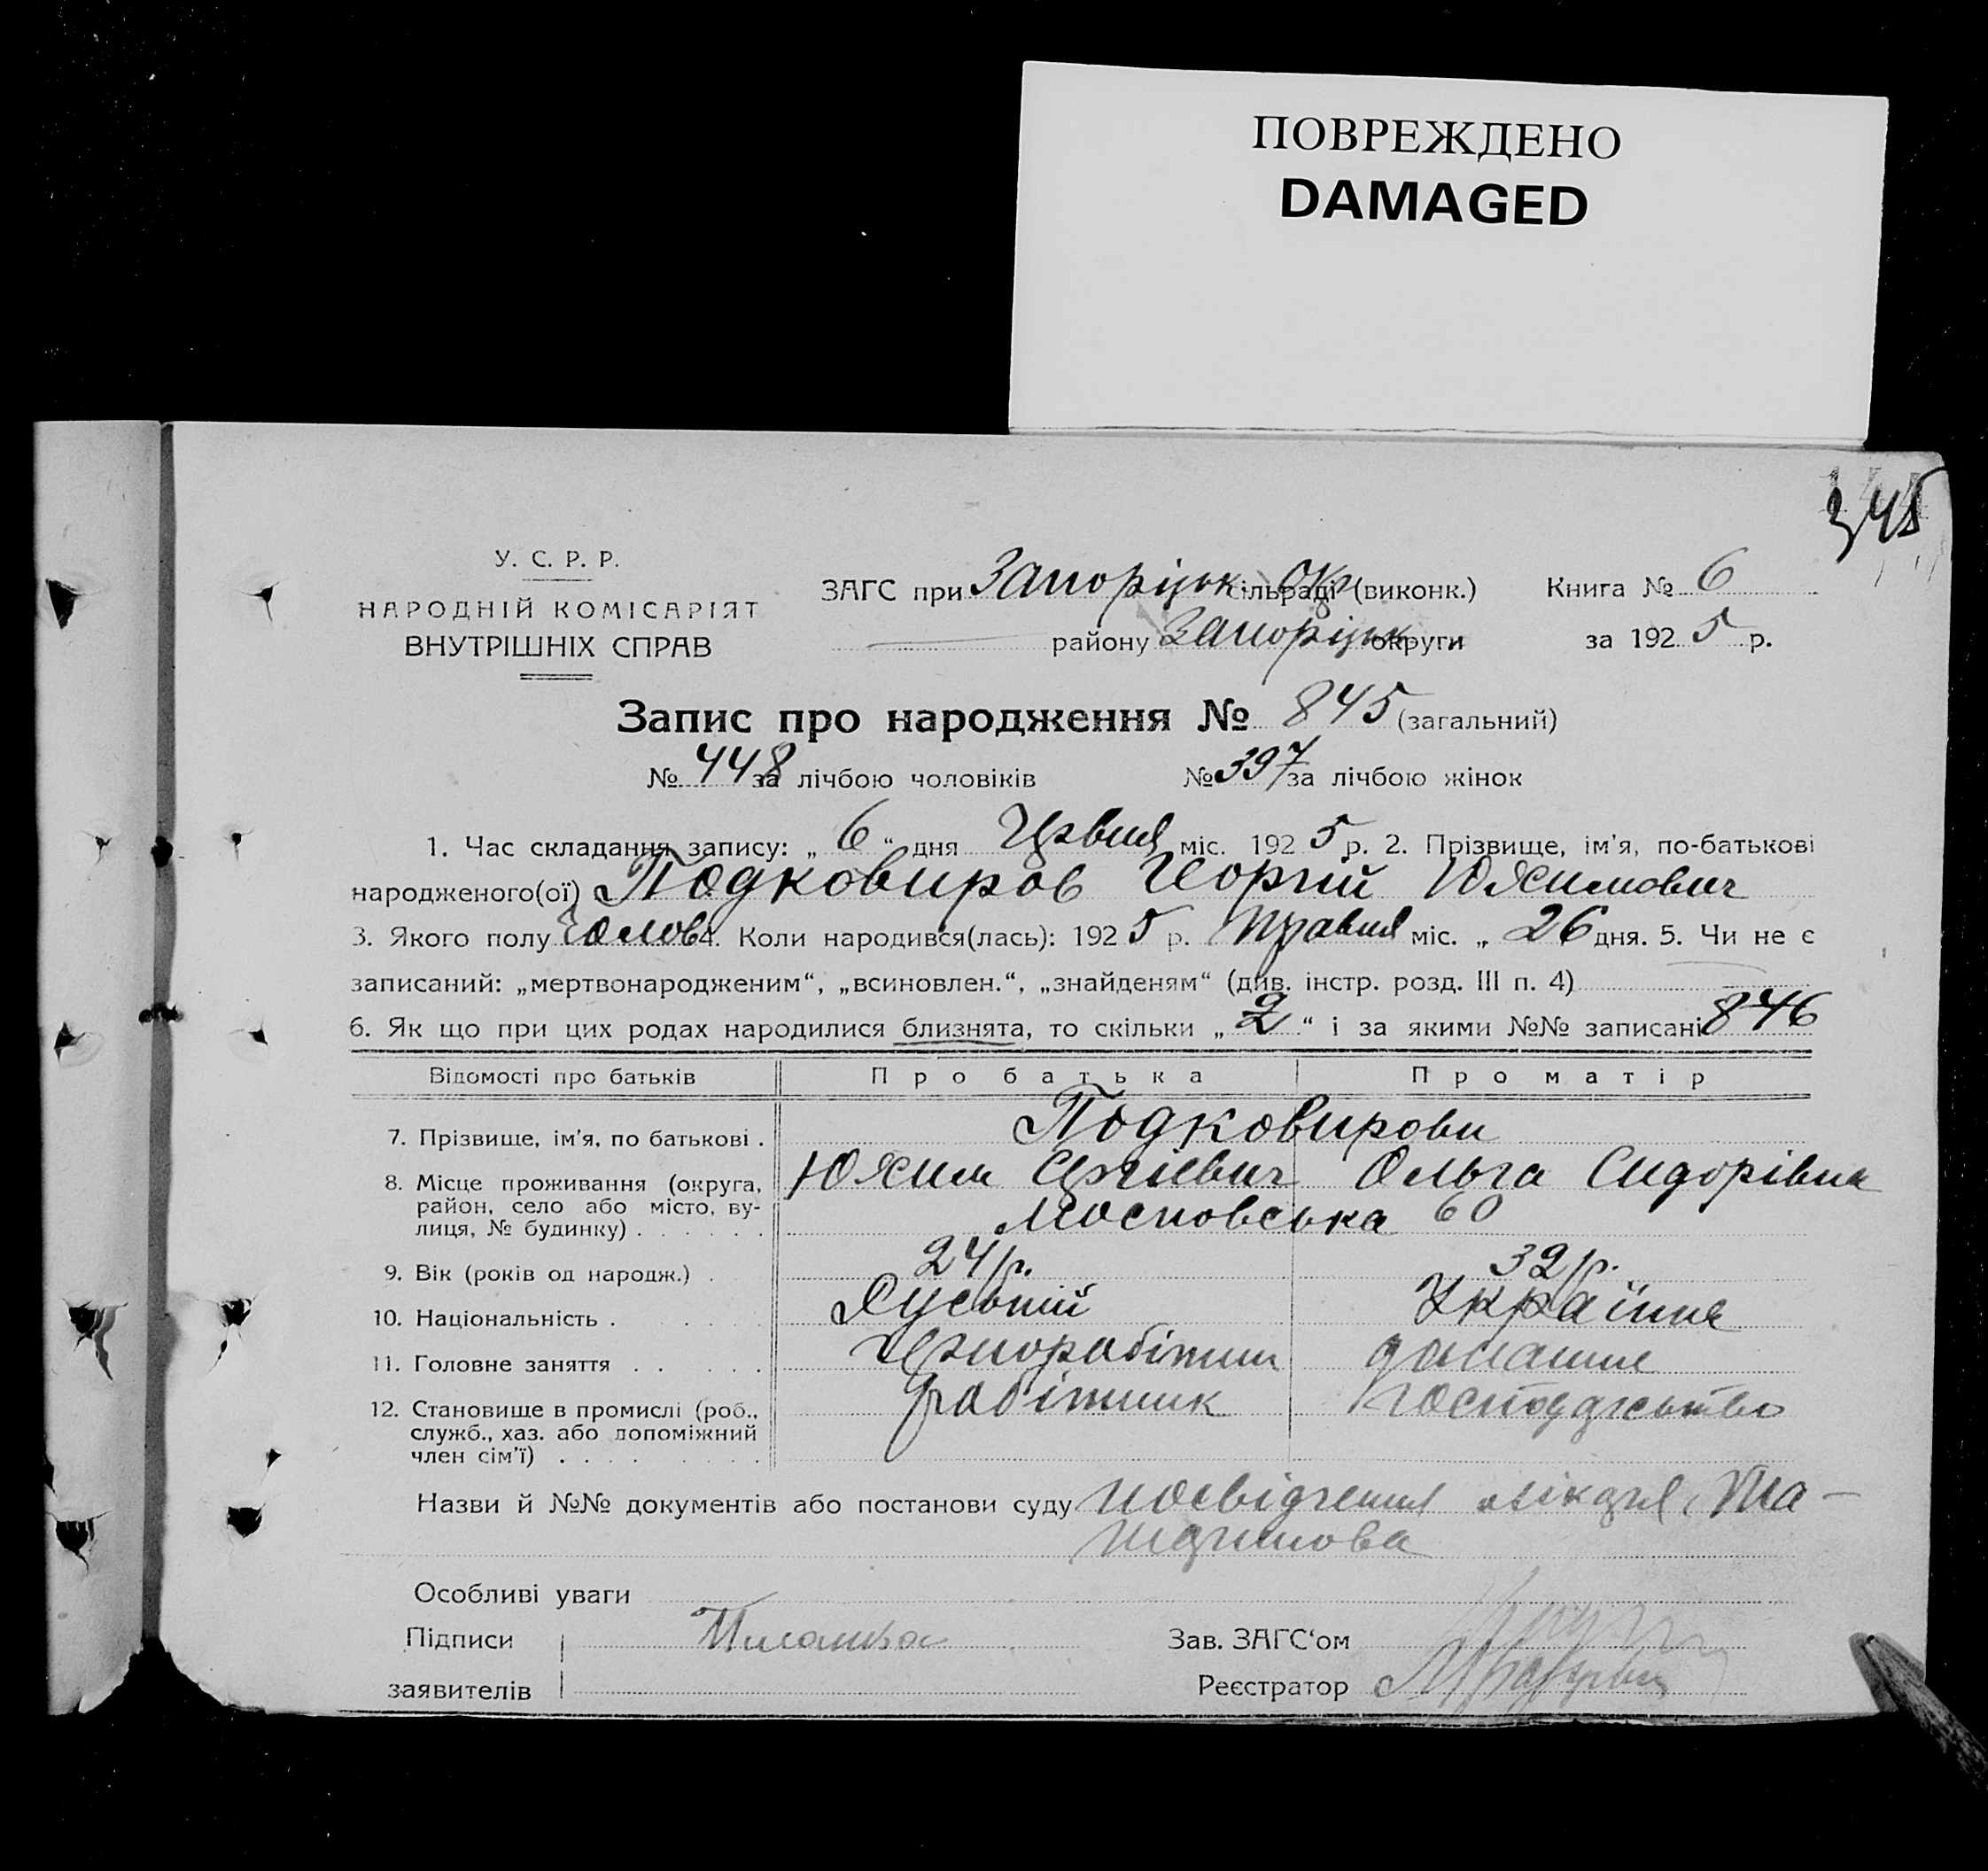 ПОВРЕЖДЕНО
DAMAGED
345
У. С. Р. Р.
НАРОДНІЙ КОМІСАРІЯТ
ВНУТРІШНІХ СПРАВ
ЗАГС при Запоріцьк. Окр сільраді (виконк.)
району Запоріцьк. округи
Книга № 6
за 1925 р.
Запис про народження № 845 (загальний)
№ 448 за лічбою чоловіків № 397 за лічбою жінок
1. Час складання запису: „ 6 “ дня Червня міс. 1925 р. 2. Прізвище, ім'я, по-батькові
народженого(ої) Подковиров Георгій Юхимович
3. Якого полу чолов 4. Коли народився(лась): 1925 р. Травня міс. „ 26 дня. 5. Чи не є
записаний: „мертвонародженим“, „всиновлен.“, „знайденям“ (див. інстр. розд. III п. 4)
6. Як що при цих родах народилися близнята, то скільки „ 2 “ і за якими №№ записані 846
Відомості про батьків Про батька Про матір
7. Прізвище, ім'я, по батькові . Подковирови
8. Місце проживання (округа, Юхим Сергієвич Ольга Сидорівна
район, село або місто, ву-
лиця, № будинку) . . . . . . Московська 60
9. Вік (років од народж.) . 24 р. 32 р.
10. Національність . . . . . . Руський Українка
11. Головне заняття . . . . . Чернорабітник домашнє
12. Становище в промислі (роб., робітник господарство
служб., хаз. або допоміжний
член сім'ї) . . . . . . . .
Назви й №№ документів або постанови суду посвідчення лікаря
Особливі уваги
Підписи
заявителів
Зав. ЗАГС'ом
Реєстратор